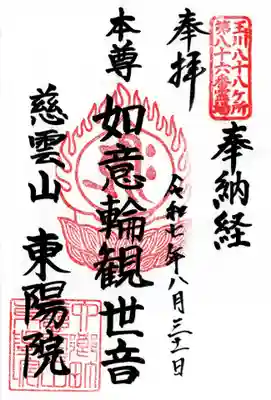 玉川八十八ケ所
第八十六番霊場
奉納経
奉拝
令和七年八月三十一日
本尊
如意輪観世音
慈雲山
東陽院